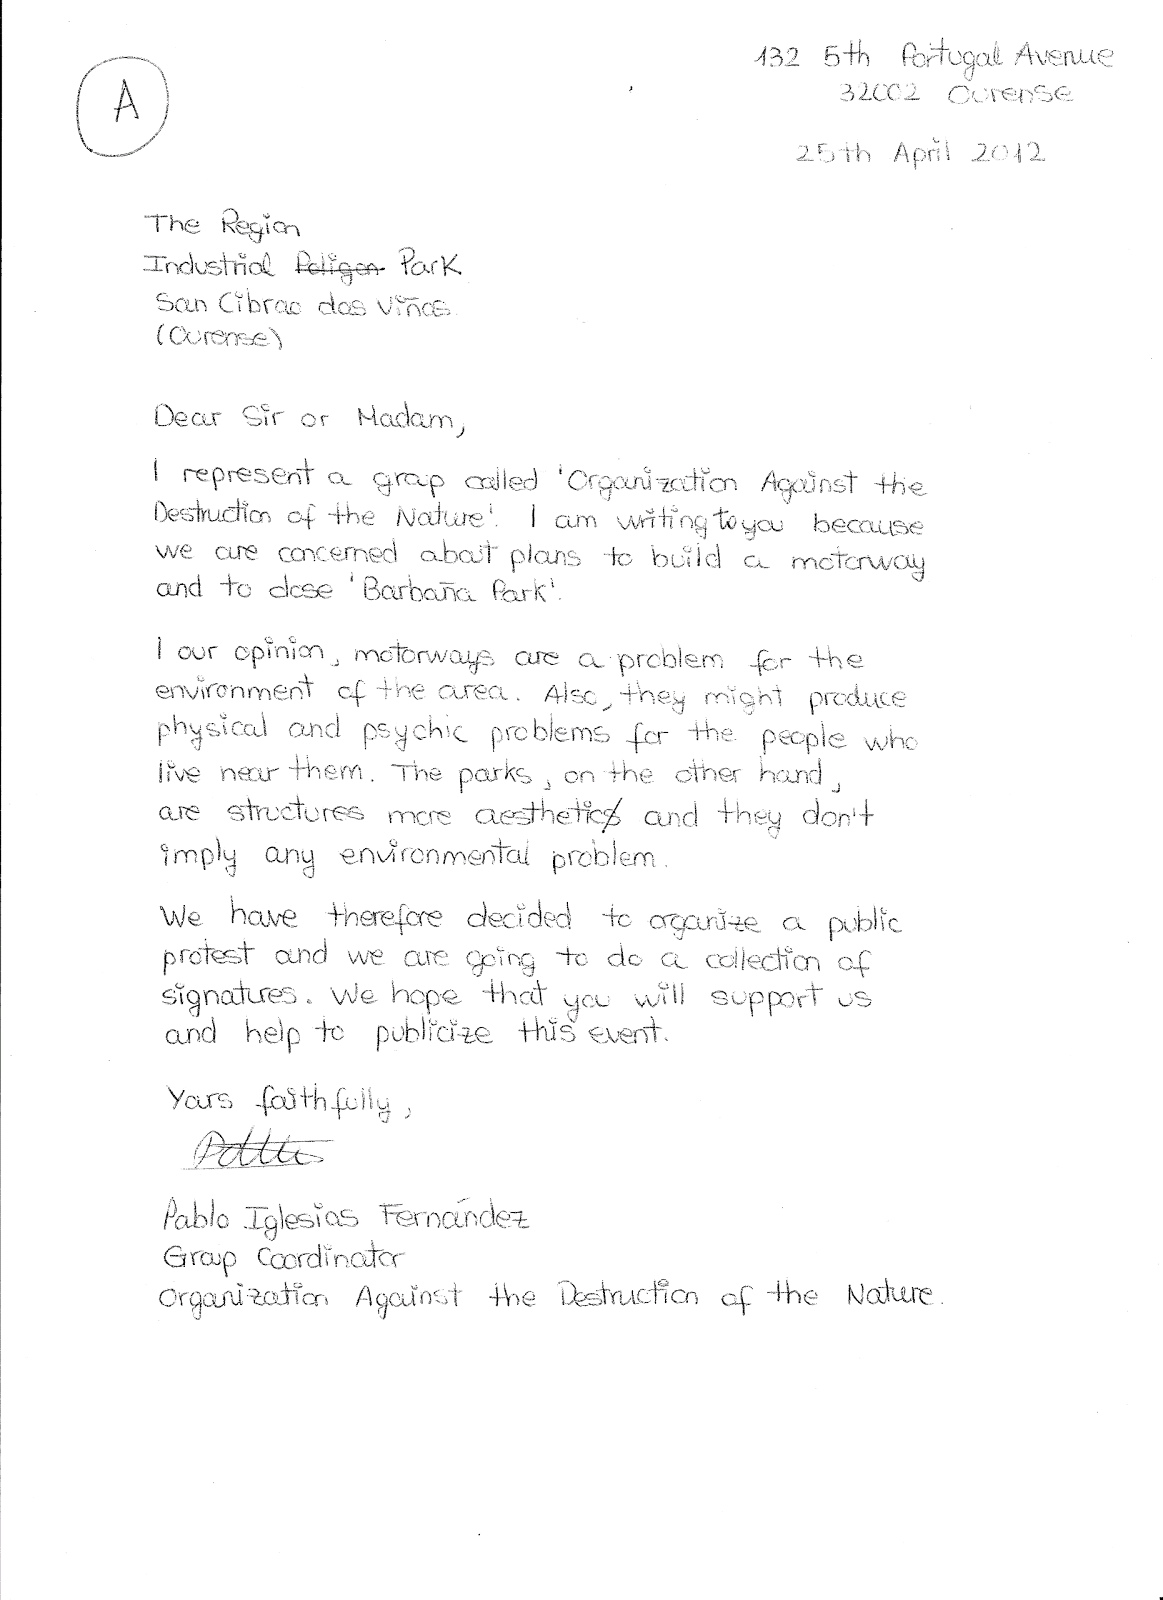 132 5th Portugal Avenue
32002 Ourense
25th April 2012
A
The Region
Industrial Poligon Park
San Cibrao das Viñas
(Ourense)
Dear Sir or Madam,
I represent a group called 'Organization Against the
Destruction of the Nature'. I am writing to you because
we are concerned about plans to build a motorway
and to close 'Barbaña Park'.
I our opinion, motorways are a problem for the
environment of the area. Also, they might produce
physical and psychic problems for the people who
live near them. The parks, on the other hand,
are structures more aesthetic and they don't
imply any environmental problem.
We have therefore decided to organize a public
protest and we are going to do a collection of
signatures. We hope that you will support us
and help to publicize this event.
Yours faithfully,
Pablo Iglesias Fernández
Group Coordinator
Organization Against the Destruction of the Nature.